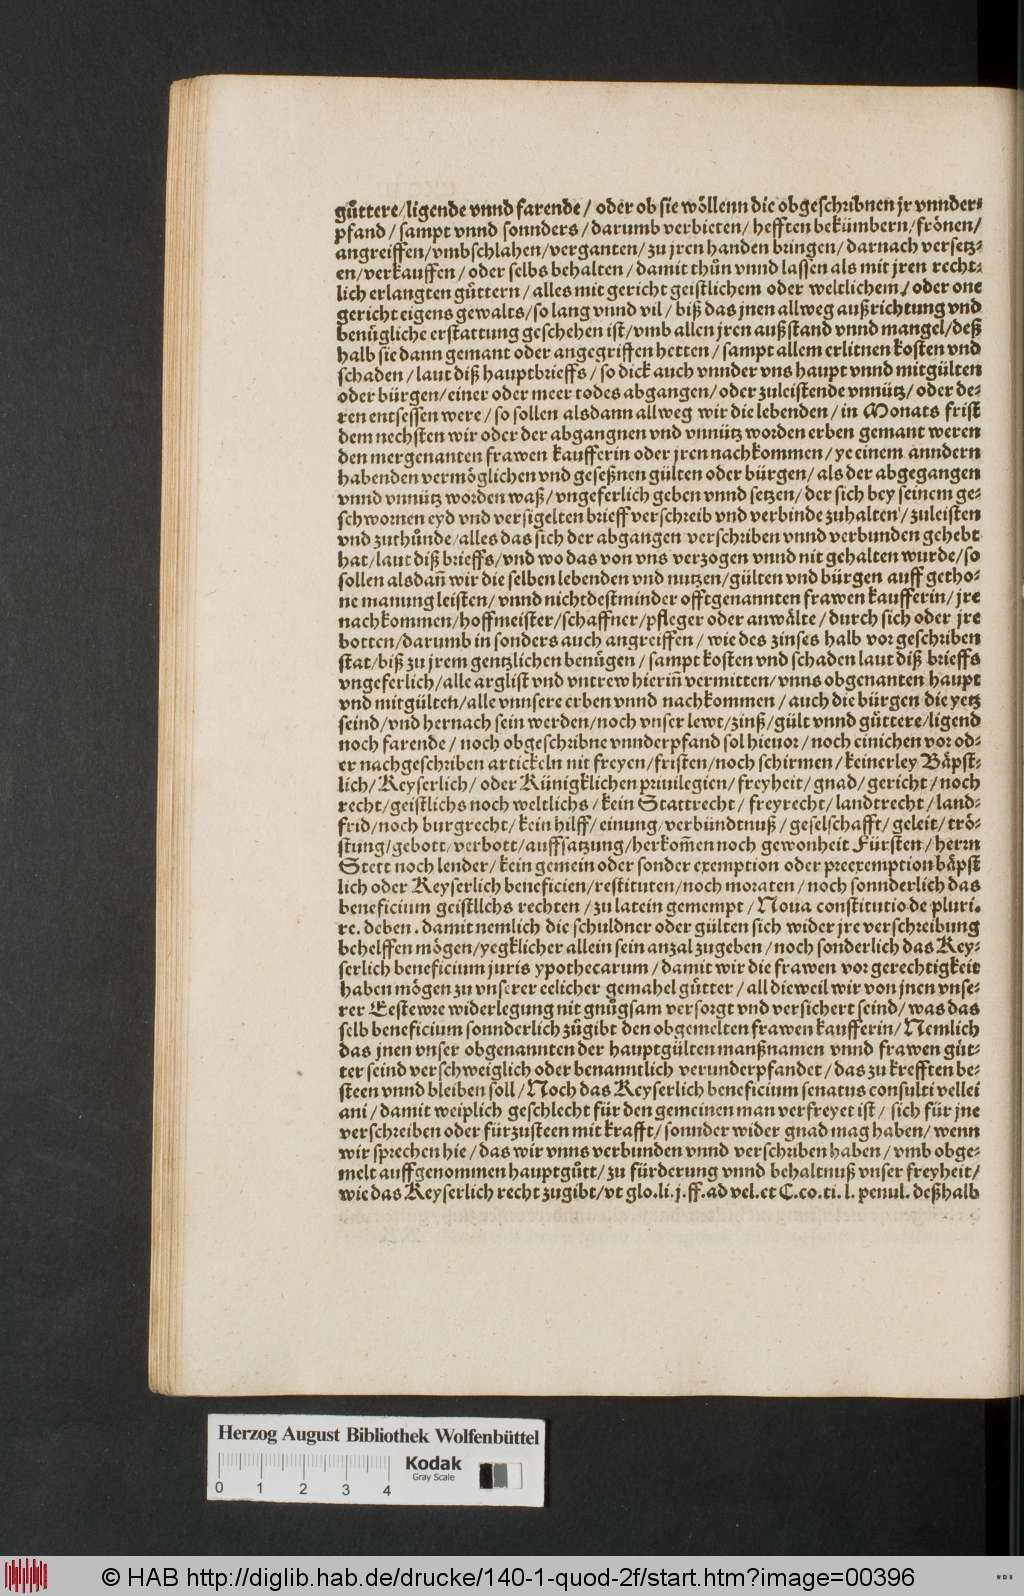 gůttere/ligende vnnd farende/ oder ob sie wöllenn die obgeschribnen jr vnnder⸗
pfand/ sampt vnnd sonnders/ darumb verbieten/ hefften bekümbern/ frönen/
angreiffen/vmbschlahen/verganten/ zu jren handen bringen/ darnach versetz⸗
en/verkauffen/ oder selbs behalten/ damit thůn vnnd lassen als mit jren recht⸗
lich erlangten gůttern/ alles mit gericht geistlichem oder weltlichem/ oder one
gericht eigens gewalts/so lang vnnd vil/ biß das jnen allweg außrichtung vnd
benůgliche erstattung geschehen ist/vmb allen jren außstand vnnd mangel/deß
halb sie dann gemant oder angegriffen hetten/ sampt allem erlitnen kosten vnd
schaden/ laut diß hauptbrieffs/ so dick auch vnnder vns haupt vnnd mitgülten
oder bürgen/einer oder meer todes abgangen/oder zuleistende vnnütz/ oder de⸗
ren entsessen were/ so sollen alsdann allweg wir die lebenden/ in Monats frist
dem nechsten wir oder der abgangnen vnd vnnütz worden erben gemant weren
den mergenanten frawen kaufferin oder jren nachkommen/ ye einem anndern
habenden vermöglichen vnd geseßnen gülten oder bürgen/ als der abgegangen
vnnd vnnütz worden waß/ vngeferlich geben vnnd setzen/ der sich bey seinem ge⸗
schwornen eyd vnd versigelten brieff verschreib vnd verbinde zuhalten/ zuleisten
vnd zuthůnde/alles das sich der abgangen verschriben vnnd verbunden gehebt
hat/laut diß brieffs/vnd wo das von vns verzogen vnnd nit gehalten wurde/so
sollen alsdañ wir die selben lebenden vnd nutzen/gülten vnd bürgen auff getho⸗
ne manung leisten/ vnnd nichtdestminder offtgenannten frawen kaufferin/ jre
nachkommen/hoffmeister/schaffner/pfleger oder anwälte/durch sich oder jre
botten/darumb in sonders auch angreiffen/ wie des zinses halb vorgeschriben
stat/biß zu jrem gentzlichen benůgen/ sampt kosten vnd schaden laut diß brieffs
vngeferlich/alle arglist vnd vntrew hieriñ vermitten/vnns obgenanten haupt
vnd mitgülten/alle vnnsere erben vnnd nachkommen/ auch die bürgen die yetz
seind/vnd hernach sein werden/noch vnser lewt/zinß/gült vnnd gůttere/ligend
noch farende/ noch obgeschribne vnnderpfand sol hieuor/ noch einichen vor od⸗
er nachgeschriben artickeln nit freyen/fristen/noch schirmen/ keinerley Bäpst⸗
lich/ Keyserlich/ oder Künigklichen priuilegien/ freyheit/ gnad/ gericht/ noch
recht/geistlichs noch weltlichs/ kein Stattrecht/ freyrecht/ landtrecht/ land⸗
frid/noch burgrecht/ kein hilff/ einung/verbündtnuß/ geselschafft/ geleit/ trö⸗
stung/gebott/verbott/auffsatzung/herkom̃en noch gewonheit Fürsten/ herrn
Stett noch lender/ kein gemein oder sonder exemption oder preexemption bäpst
lich oder Keyserlich beneficien/restituten/noch moraten/ noch sonnderlich das
beneficium geistllchs rechten/ zu latein gemempt/ Noua constitutio de pluri.
re. deben. damit nemlich die schuldner oder gülten sich wider jre verschreibung
behelffen mögen/yegklicher allein sein anzal zugeben/noch sonderlich das Key⸗
serlich beneficium juris ypothecarum/damit wir die frawen vorgerechtigkeit
haben mögen zu vnserer eelicher gemahel gütter/ all dieweil wir von jnen vnse⸗
rer Eestewre widerlegung nit gnůgsam versorgt vnd versichert seind/ was das
selb beneficium sonnderlich zůgibt den obgemelten frawen kaufferin/ Nemlich
das jnen vnser obgenannten der hauptgülten manßnamen vnnd frawen gůt⸗
ter seind verschweiglich oder benanntlich verunderpfandet/ das zu krefften be⸗
steen vnnd bleiben soll/ Noch das Keyserlich beneficium senatus consulti vellei
ani/ damit weiplich geschlecht für den gemeinen man verfreyet ist/ sich für jne
verschreiben oder fürzusteen mit krafft/ sonnder wider gnad mag haben/ wenn
wir sprechen hie/ das wir vnns verbunden vnnd verschriben haben/ vmb obge⸗
melt auffgenommen hauptgůtt/ zu fürderung vnnd behaltnuß vnser freyheit/
wie das Keyserlich recht zugibt/vt glo.li.j.ff.ad vel.et C.co.ti.l. penul. deßhalb
Herzog August Bibliothek Wolfenbüttel
Kodak
Gray Scale
0 1 2 3 4
© HAB http://diglib.hab.de/drucke/140-1-quod-2f/start.htm?image=00396